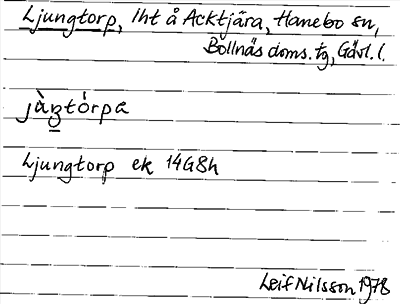 Ljungtorp, lht å Acktjära, Hanebo sn,
Bollnäs doms. tg, Gävl. l.
jàŋtórpa
Ljungtorp ek 14G8h
Leif Nilsson 1978